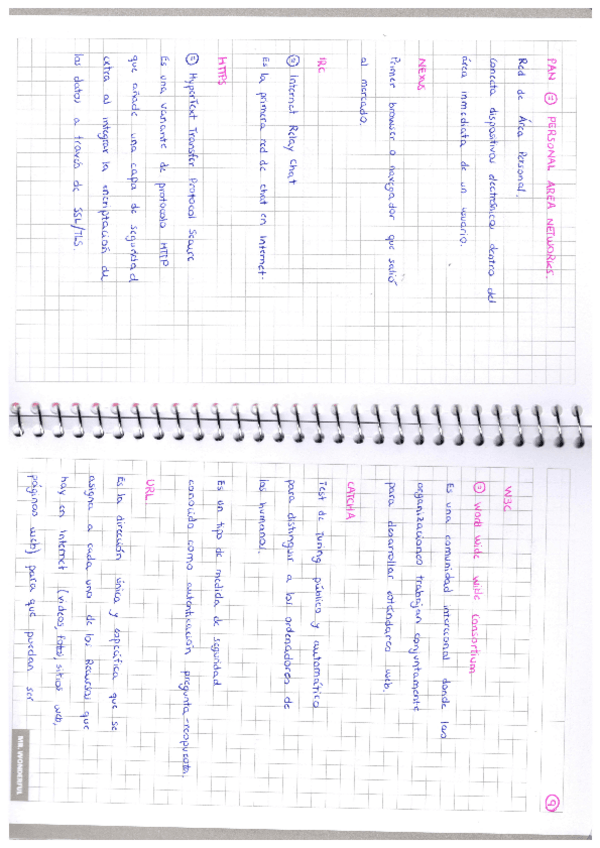 PAN (=) PERSONAL AREA NETWORKS.
Red de Área Personal.
Conecta dispositivos electrónicos dentro del
área inmediata de un usuario.
NEXUS
Primer browser o navegador que salió
al mercado.
IRC
(=) Internet Relay Chat
Es la primera red de chat en Internet.
HTTPS
(=) HyperText Transfer Protocol Secure
Es una variante de protocolo HTTP
que añade una capa de seguridad
extra al integrar la encriptación de
los datos a través de SSL/TLS.
9
W3C
(=) Word Wide Web Consortium
Es una comunidad internacional donde las
organizaciones trabajan conjuntamente
para desarrollar estándares web.
CATCHA
Test de Turing público y automático
para distinguir a los ordenadores de
los humanos.
Es un tipo de medida de seguridad
conocido como autenticación pregunta-respuesta.
URL
Es la dirección única y específica que se
asigna a cada uno de los Recursos que
hay en Internet (videos, fotos, sitios web,
páginas web) para que puedan ser
MR. WONDERFUL